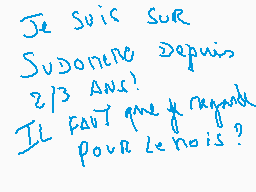 Je suis sur
Sudomemo depuis
2/3 ANS!
IL FAUT que je regarde
pour le mois?